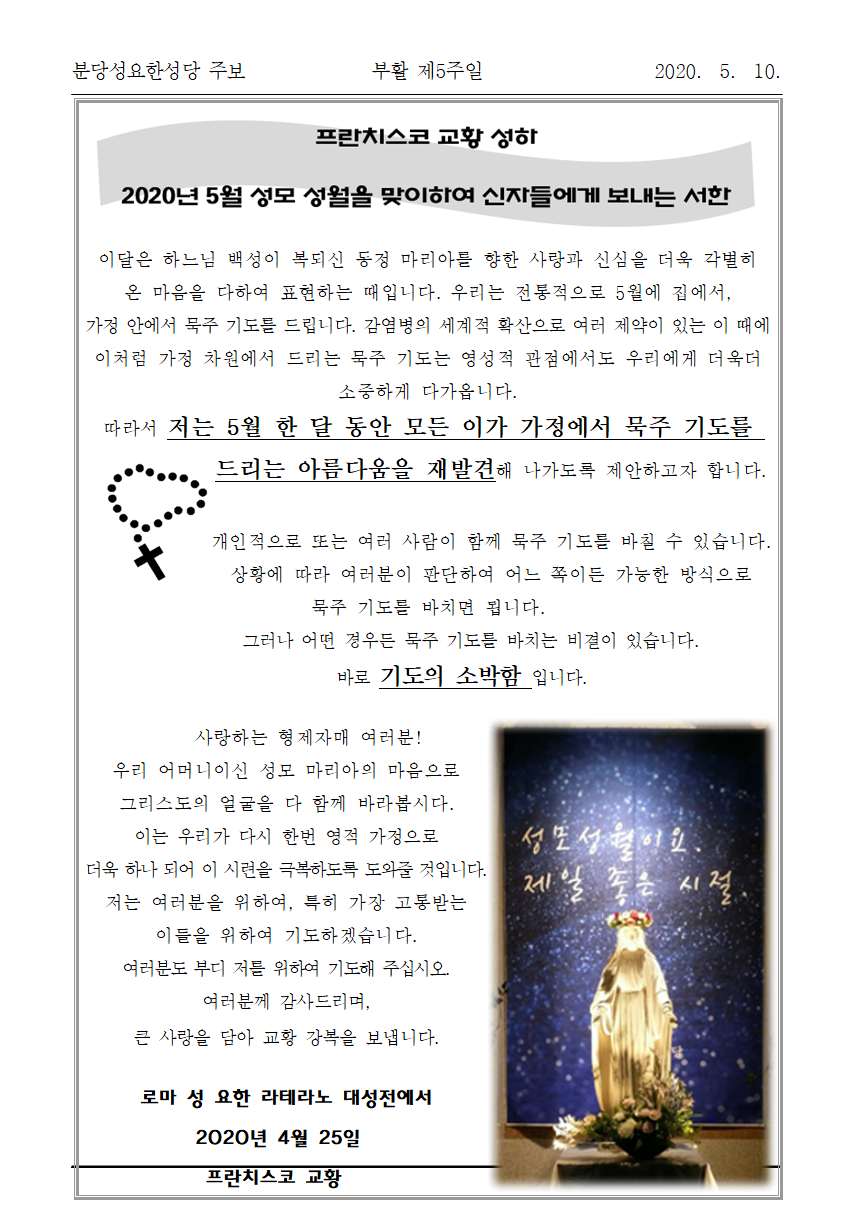 분당성요한성당 주보 부활 제5주일 2020. 5. 10.
프란치스코 교황 성하
2020년 5월 성모 성월을 맞이하여 신자들에게 보내는 서한
이달은 하느님 백성이 복되신 동정 마리아를 향한 사랑과 신심을 더욱 각별히
온 마음을 다하여 표현하는 때입니다. 우리는 전통적으로 5월에 집에서,
가정 안에서 묵주 기도를 드립니다. 감염병의 세계적 확산으로 여러 제약이 있는 이 때에
이처럼 가정 차원에서 드리는 묵주 기도는 영성적 관점에서도 우리에게 더욱더
소중하게 다가옵니다.
따라서 저는 5월 한 달 동안 모든 이가 가정에서 묵주 기도를
드리는 아름다움을 재발견해 나가도록 제안하고자 합니다.
개인적으로 또는 여러 사람이 함께 묵주 기도를 바칠 수 있습니다.
상황에 따라 여러분이 판단하여 어느 쪽이든 가능한 방식으로
묵주 기도를 바치면 됩니다.
그러나 어떤 경우든 묵주 기도를 바치는 비결이 있습니다.
바로 기도의 소박함 입니다.
사랑하는 형제자매 여러분!
우리 어머니이신 성모 마리아의 마음으로
그리스도의 얼굴을 다 함께 바라봅시다.
이는 우리가 다시 한번 영적 가정으로
더욱 하나 되어 이 시련을 극복하도록 도와줄 것입니다.
저는 여러분을 위하여, 특히 가장 고통받는
이들을 위하여 기도하겠습니다.
여러분도 부디 저를 위하여 기도해 주십시오.
여러분께 감사드리며,
큰 사랑을 담아 교황 강복을 보냅니다.
로마 성 요한 라테라노 대성전에서
2020년 4월 25일
프란치스코 교황
성모성월이요.
제일 좋은 시절.